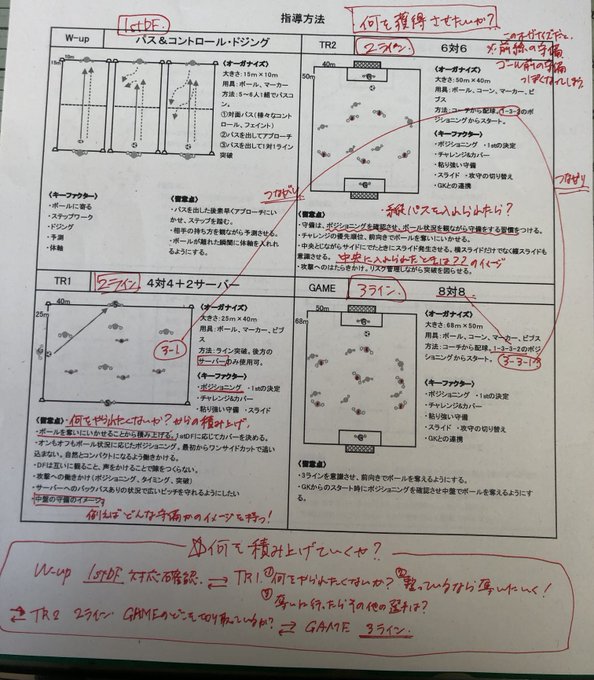 指導方法
何を獲得させたいか?
1stDF.
W-up
パス&コントロール・ドジング
15m
10m
(オーガナイズ)
大きさ:15m×10m
用具:ボール、マーカー
方法:5~6人1組でパスコン。
①対面パス(様々なコントロール、フェイント)
②パスを出してアプローチ
③パスを出して1対1ライン突破
(キーファクター)
・ボールに寄る
・ステップワーク
・ドジング
・予測
・体軸
(留意点)
・パスを出した後素早くアプローチにいかせ、ステップを踏む。
・相手の持ち方を観ながら予測させる。
・ボールが離れた瞬間に体軸を入れれるようにする。
つながり
TR2
2ライン
6対6
このオーガナイズだと
※前線の守備
ゴール前の守備
っぽくなってしまう
40m
50m
G
G
(オーガナイズ)
大きさ:50m×40m
用具:ボール、コーン、マーカー、ビブス
方法:コーチから配球。1-3-2のポジショニングからスタート。
(キーファクター)
・ポジショニング ・1stの決定
・チャレンジ&カバー
・粘り強い守備
・スライド ・攻守の切り替え
・GKとの連携
つながり
・縦パスを入れられたら?
(留意点)
・守備は、ポジショニングを確認させ、ボール状況を観ながら守備をする習慣をつける。
・チャレンジの優先順位、前向きでボールを奪いにいかせる。
・中央としながらサイドにでたときにスライド発生させる。横スライドだけでなく縦スライドも意識させる。
中央に入れられたときは??のイメージ
・攻撃へのはたらきかけ。リスク管理しながら突破を図らせる。
TR1
2ライン
4対4+2サーバー
40m
25m
S
S
3-1
(オーガナイズ)
大きさ:25m×40m
用具:ボール、マーカー、ビブス
方法:ライン突破。後方のサーバーのみ使用可。
(キーファクター)
・ポジショニング ・1stの決定
・チャレンジ&カバー
・粘り強い守備 ・スライド
(留意点)
・何をやられたくないか?からの積み上げ
・ボールを奪いにいかせることから積み上げる。1stDFに応じてカバーを決める。
・オンもオフもボール状況に応じたポジショニング。最初からワンサイドカットで追い込まない。自然とコンパクトになるよう働きかける。
・DFは互いに観ること、声をかけることで隙をつくらない。
・攻撃への働きかけ(ポジショニング、タイミング、突破)
・サーバーへのバックパスありの状況で広いピッチを守れるようにしたい
中盤の守備のイメージ
例えばどんな守備かのイメージを持つ!
GAME
3ライン
8対8
50m
68m
G
G
(オーガナイズ)
大きさ:68m×50m
用具:ボール、コーン、マーカー、ビブス
方法:コーチから配球、1-3-3-2のポジショニングからスタート。
3-3-1?
(キーファクター)
・ポジショニング ・1stの決定
・チャレンジ&カバー
・粘り強い守備
・スライド ・攻守の切り替え
・GKとの連携
(留意点)
・3ラインを意識させ、前向きでボールを奪えるようにする。
・GKからのスタート時にポジショニングを確認させ中盤でボールを奪えるようにする。
☆何を積み上げていくか?
W-up 1stDF 対応の確認. ⇄ TR1.①何をやられたくないか? ②整っているなら奪いにいく!
③奪いに行ったらその他の選手は?
⇄ TR2 2ライン GAMEのどこを切り取っているか? ⇄ GAME 3ライン.